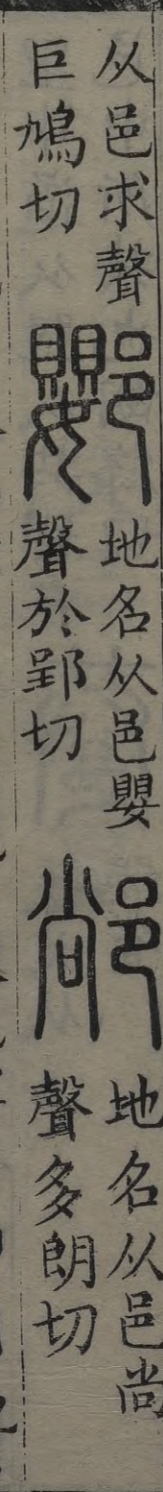 从邑求聲
巨鳩切
𨟙
地名从邑嬰
聲於郢切
䣊
地名从邑尚
聲多朗切